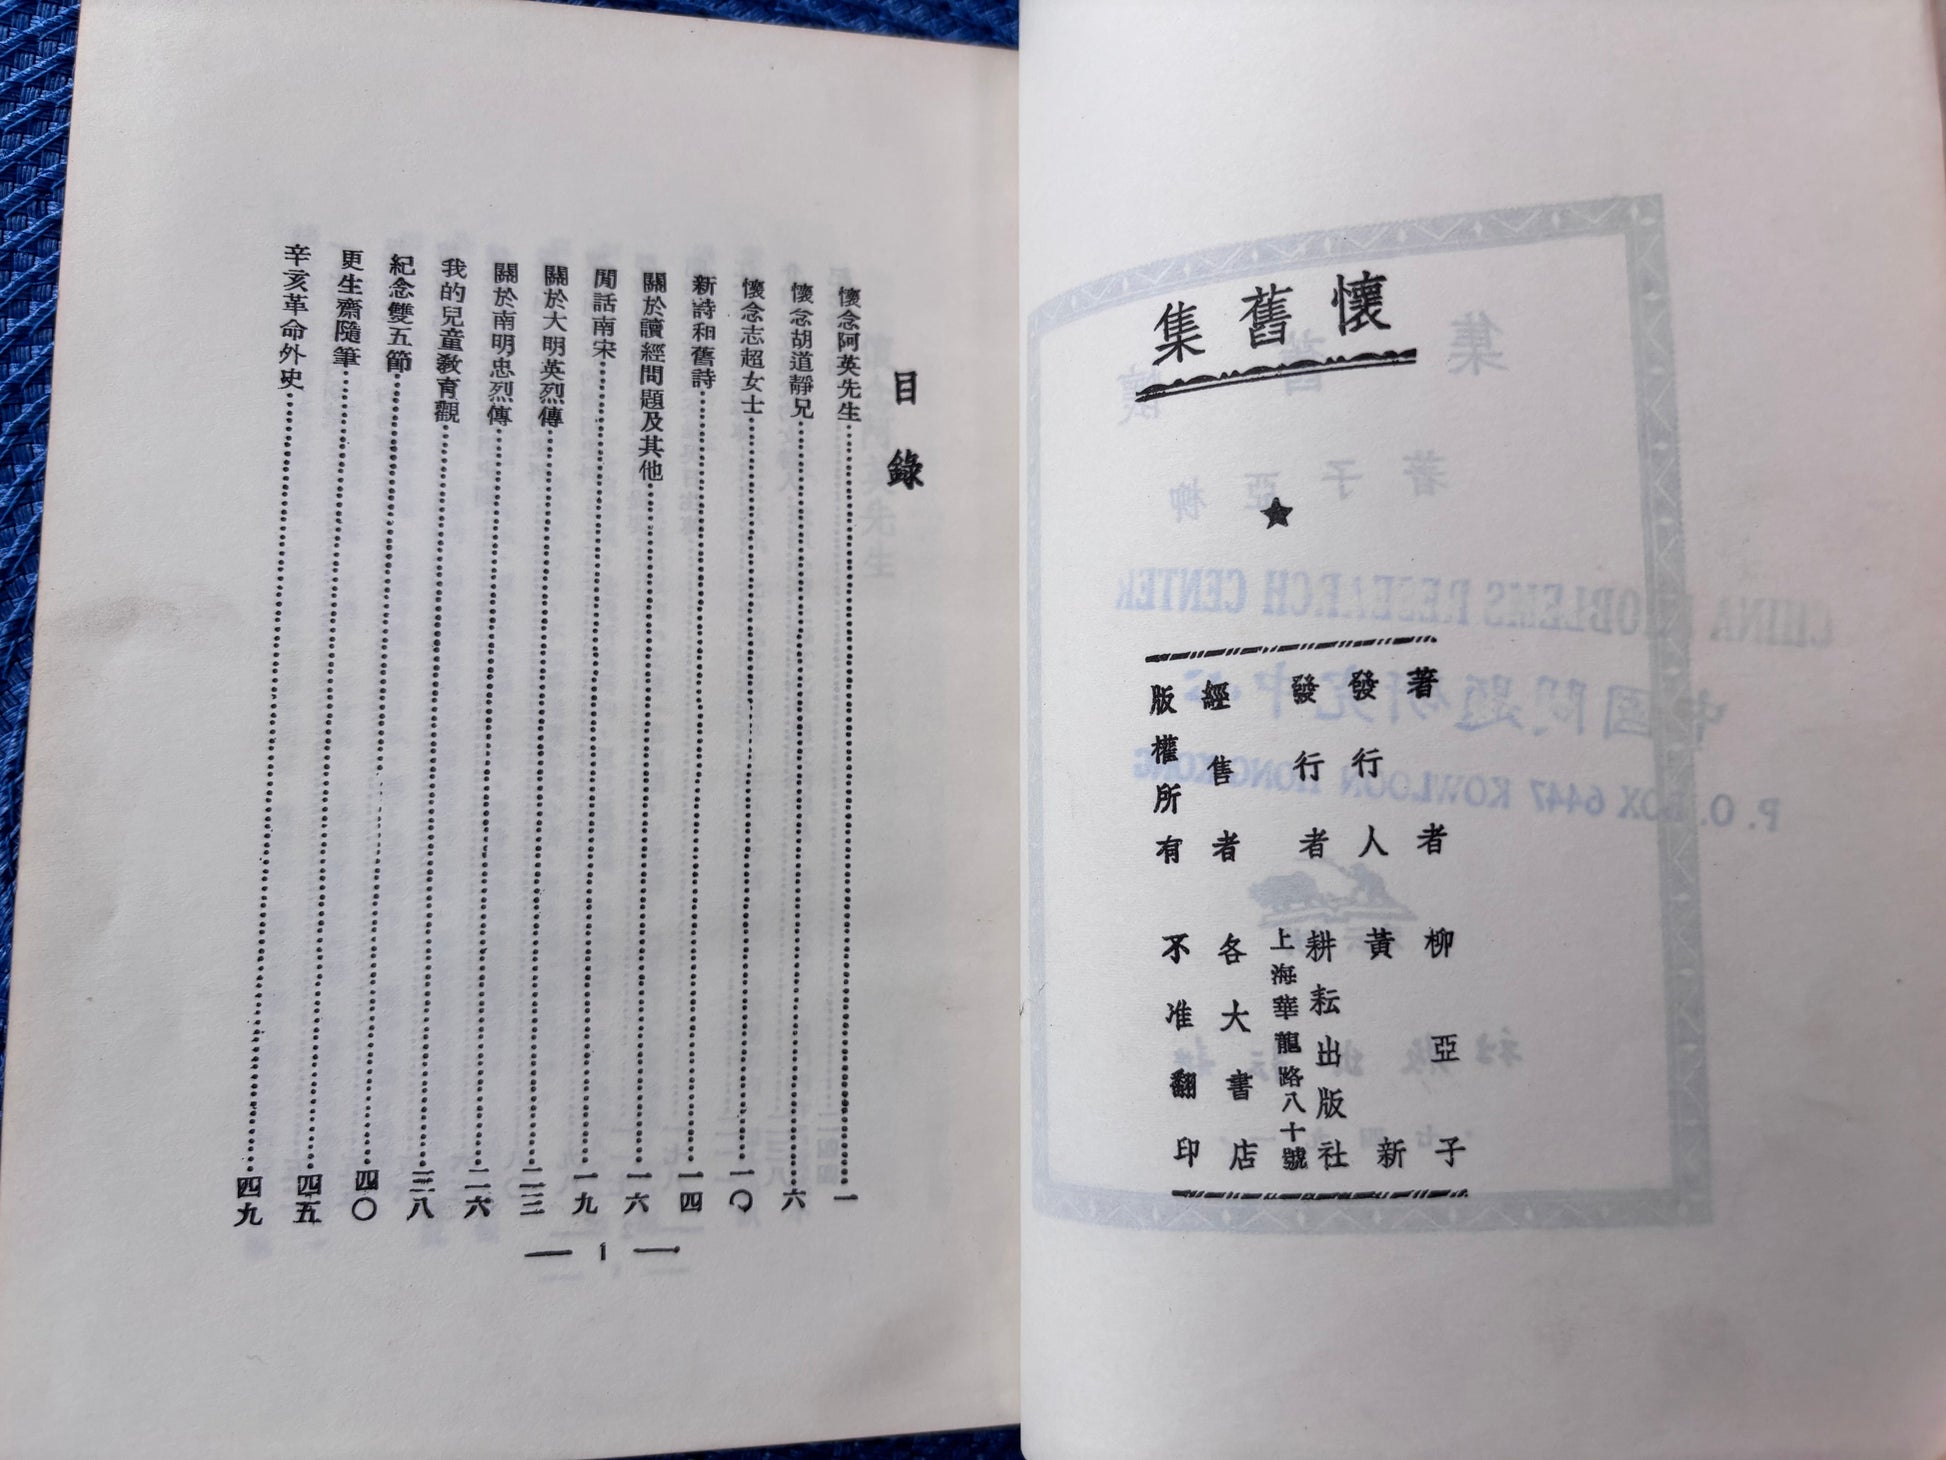 懷舊集
★
著者 柳亞子
發行人 黃新
發行者 耕耘出版社
上海華龍路八十號
經售者 各大書店
版權所有 不准翻印
CHINA PROBLEMS RESEARCH CENTER
中國問題研究中心
P. O. BOX 6447 KOWLOON HONG KONG
懷舊集
柳亞子著
目錄
懷念阿英先生 一
懷念胡道靜兄 六
懷念志超女士 一〇
新詩和舊詩 一四
關於讀經問題及其他 一六
閒話南宋 一九
關於大明英烈傳 二三
關於南明忠烈傳 二六
我的兒童教育觀 三八
紀念雙五節 四〇
更生齋隨筆 四五
辛亥革命外史 四九
— 1 —